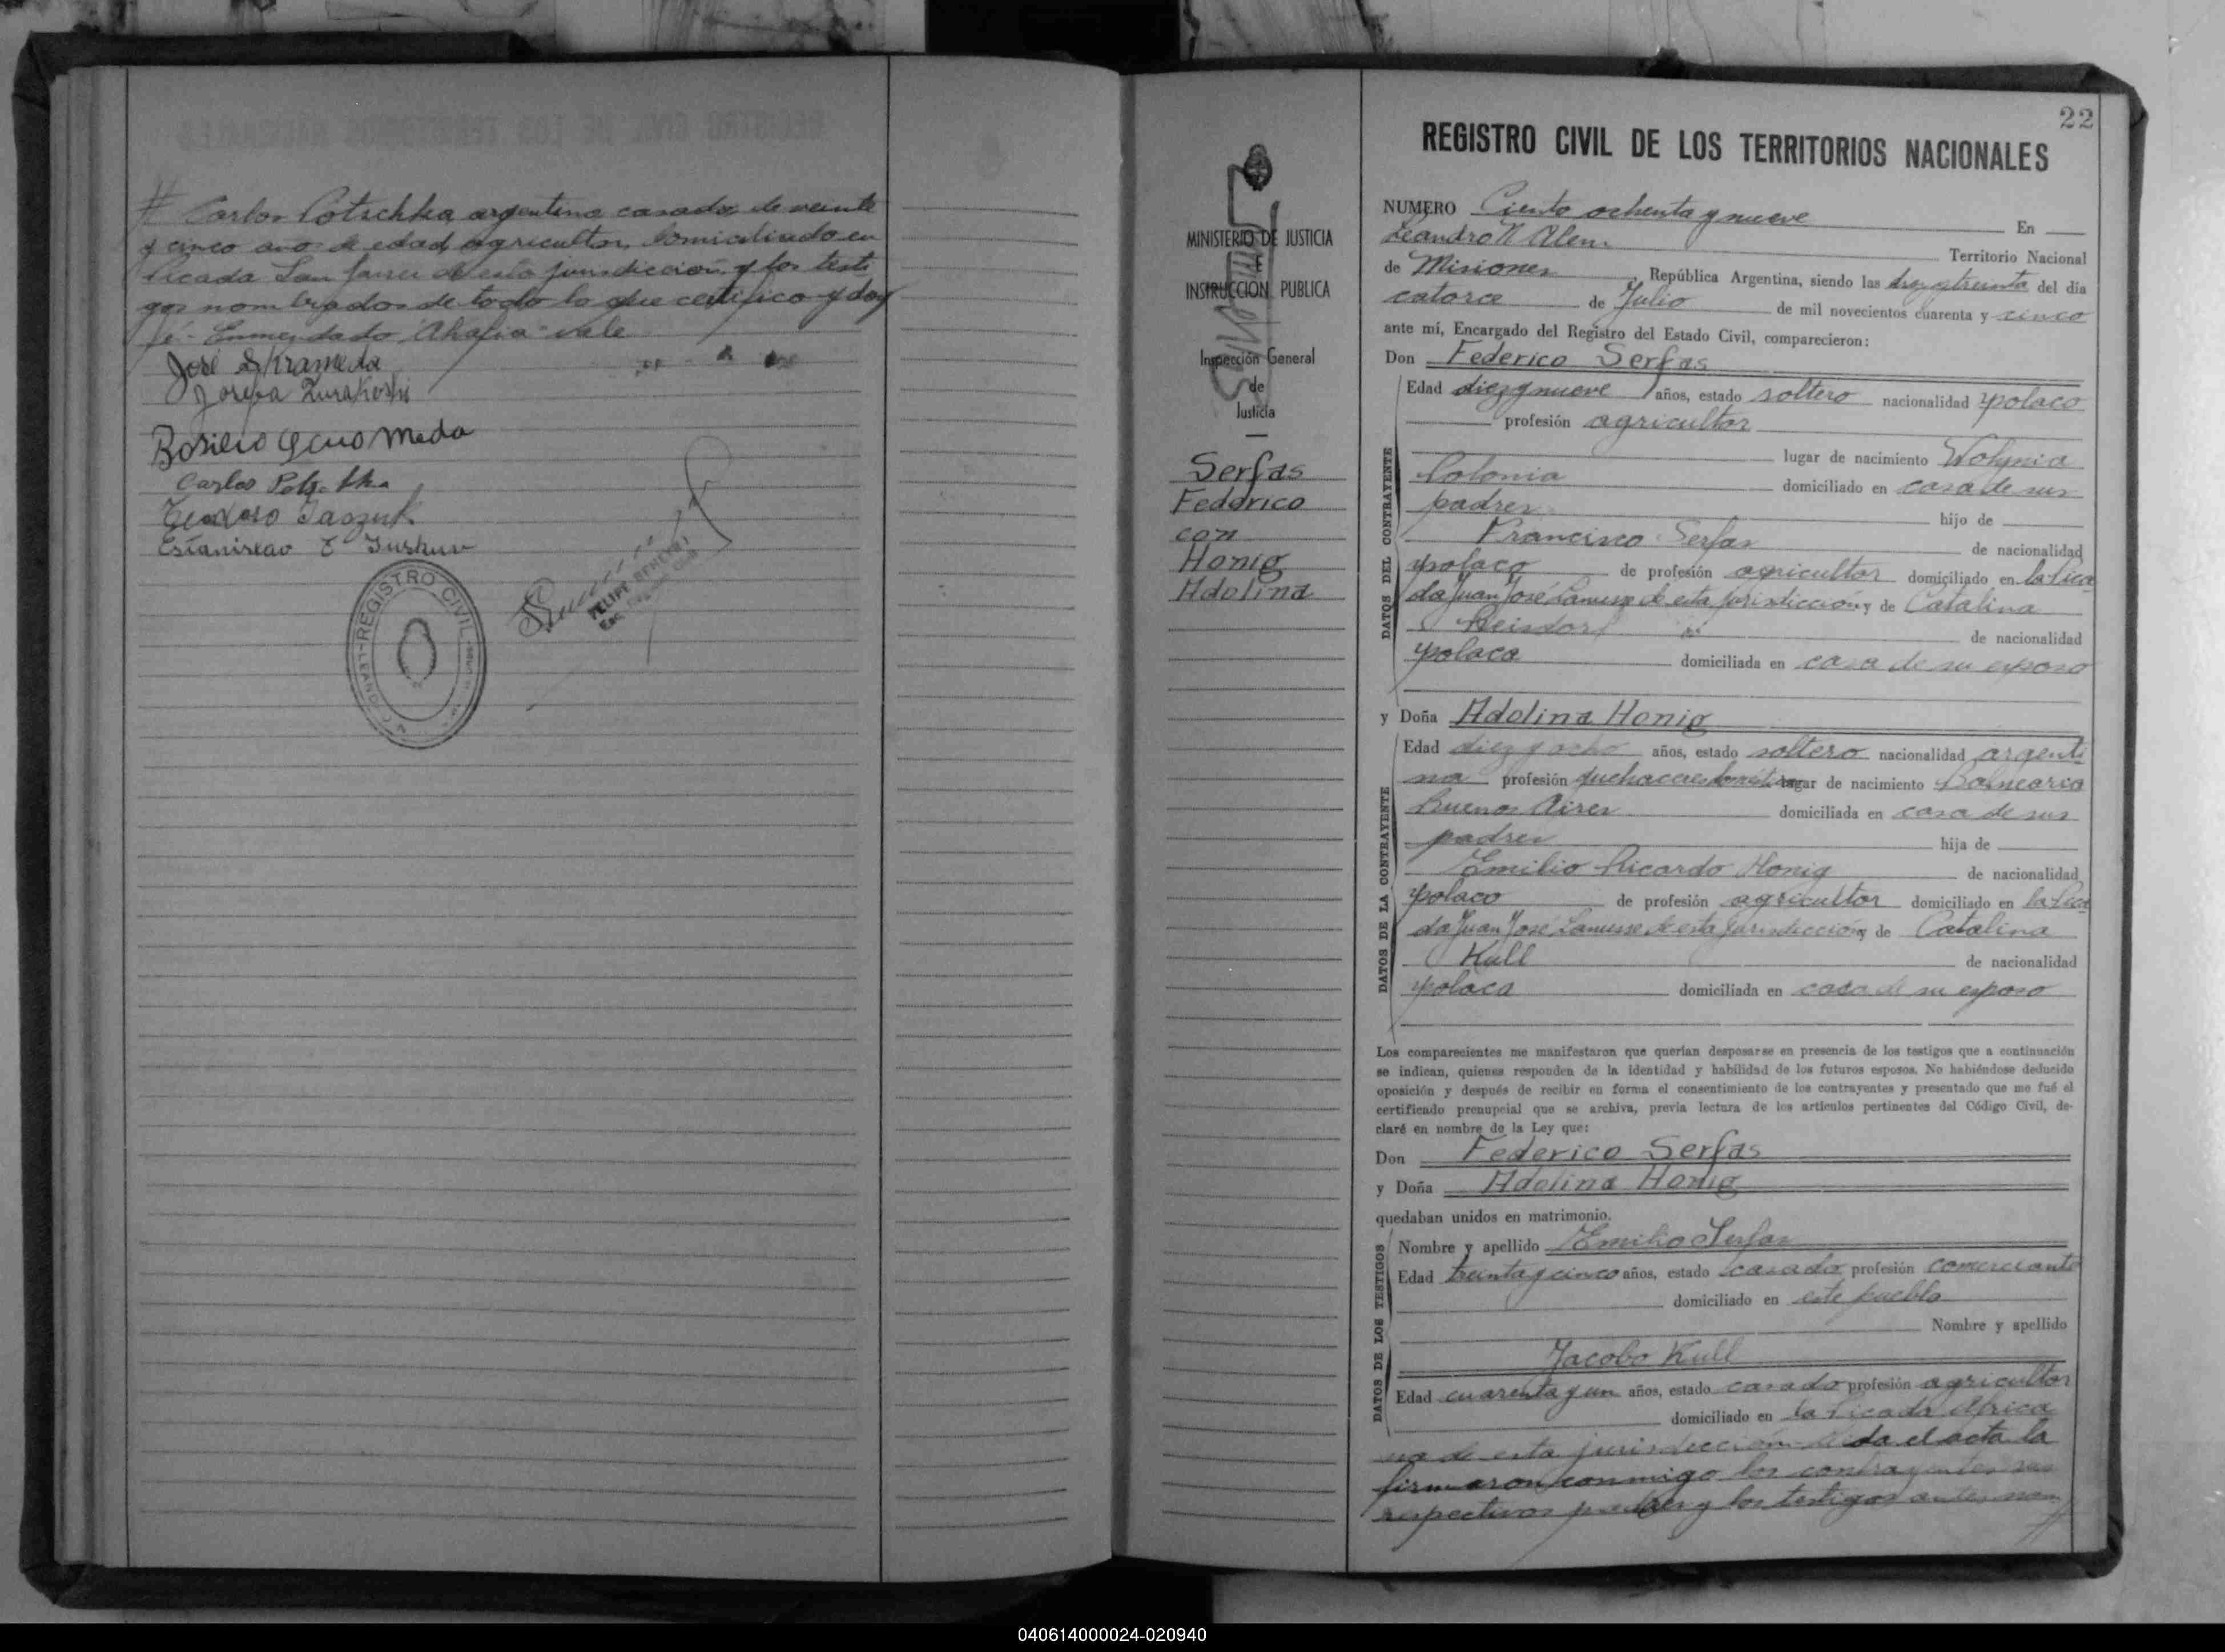 # Carlos Potschka, argentino, casado, de veinte
y cinco años de edad, agricultor, domiciliado en
Picada San Javier de esta jurisdicción y los testi
gos nombrados de todo lo que certifico y doy
fé- Enmendado vale
José Skrameda
Josefa Zurakoski
Carlos Potschka
Estanislao
REGISTRO CIVIL
FELIPE
22
REGISTRO CIVIL DE LOS TERRITORIOS NACIONALES
MINISTERIO DE JUSTICIA
E
INSTRUCCION PUBLICA
Inspección General
de
Justicia
Serfas
Federico
con
Honig
Adolina
NUMERO Ciento ochenta y nueve En
Leandro N Alem Territorio Nacional
de Misiones, República Argentina, siendo las diez y treinta del día
catorce de Julio de mil novecientos cuarenta y cinco
ante mí, Encargado del Registro del Estado Civil, comparecieron:
Don Federico Serfas
DATOS DEL CONTRAYENTE
Edad diez y nueve años, estado soltero nacionalidad polaco
profesión agricultor
lugar de nacimiento Wolynia
Colonia domiciliado en casa de sus
padres hijo de
Francisco Serfas de nacionalidad
polaco de profesión agricultor domiciliado en la Pica
da Juan José Lanusse de esta jurisdicción y de Catalina
de nacionalidad
polaca domiciliada en casa de su esposo
y Doña Adolina Honig
DATOS DE LA CONTRAYENTE
Edad diez y ocho años, estado soltero nacionalidad argenti
na profesión quehaceres domésticos lugar de nacimiento Balneario
Buenos Aires domiciliada en casa de sus
padres hija de
Emilio Ricardo Honig de nacionalidad
polaco de profesión agricultor domiciliado en la Pica
da Juan José Lanusse de esta jurisdicción y de Catalina
Kull de nacionalidad
polaca domiciliada en casa de su esposo
Los comparecientes me manifestaron que querían desposarse en presencia de los testigos que a continuación
se indican, quienes responden de la identidad y habilidad de los futuros esposos. No habiéndose deducido
oposición y después de recibir en forma el consentimiento de los contrayentes y presentado que me fué el
certificado prenupcial que se archiva, previa lectura de los artículos pertinentes del Código Civil, de-
claré en nombre de la Ley que:
Don Federico Serfas
y Doña Adolina Honig
quedaban unidos en matrimonio.
DATOS DE LOS TESTIGOS
Nombre y apellido Emilio Serfas
Edad treinta y cinco años, estado casado profesión comerciante
domiciliado en este pueblo
Nombre y apellido
Jacobo Kull
Edad cuarenta y un años, estado casado profesión agricultor
domiciliado en la Picada Africa
na de esta jurisdicción leida el acta la
firmaron conmigo los contrayentes sus
respectivos padres y los testigos antes nom
040614000024-020940